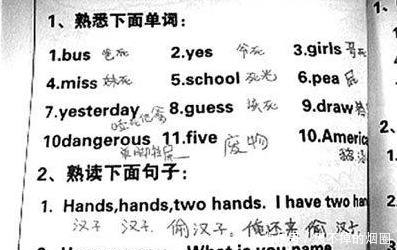 1、熟悉下面单词:
1.bus 爸死 2.yes 爷死 3.girls 哥死
4.miss 妹死 5.school 死光 6.pea 屁
7.yesterday 8.guess 9.draw
10dangerous 11.five 废物 10.Americ
2、熟读下面句子:
1. Hands,hands,two hands. I have two han
汉子 汉子 偷汉子。俺还来偷汉子
What is you name